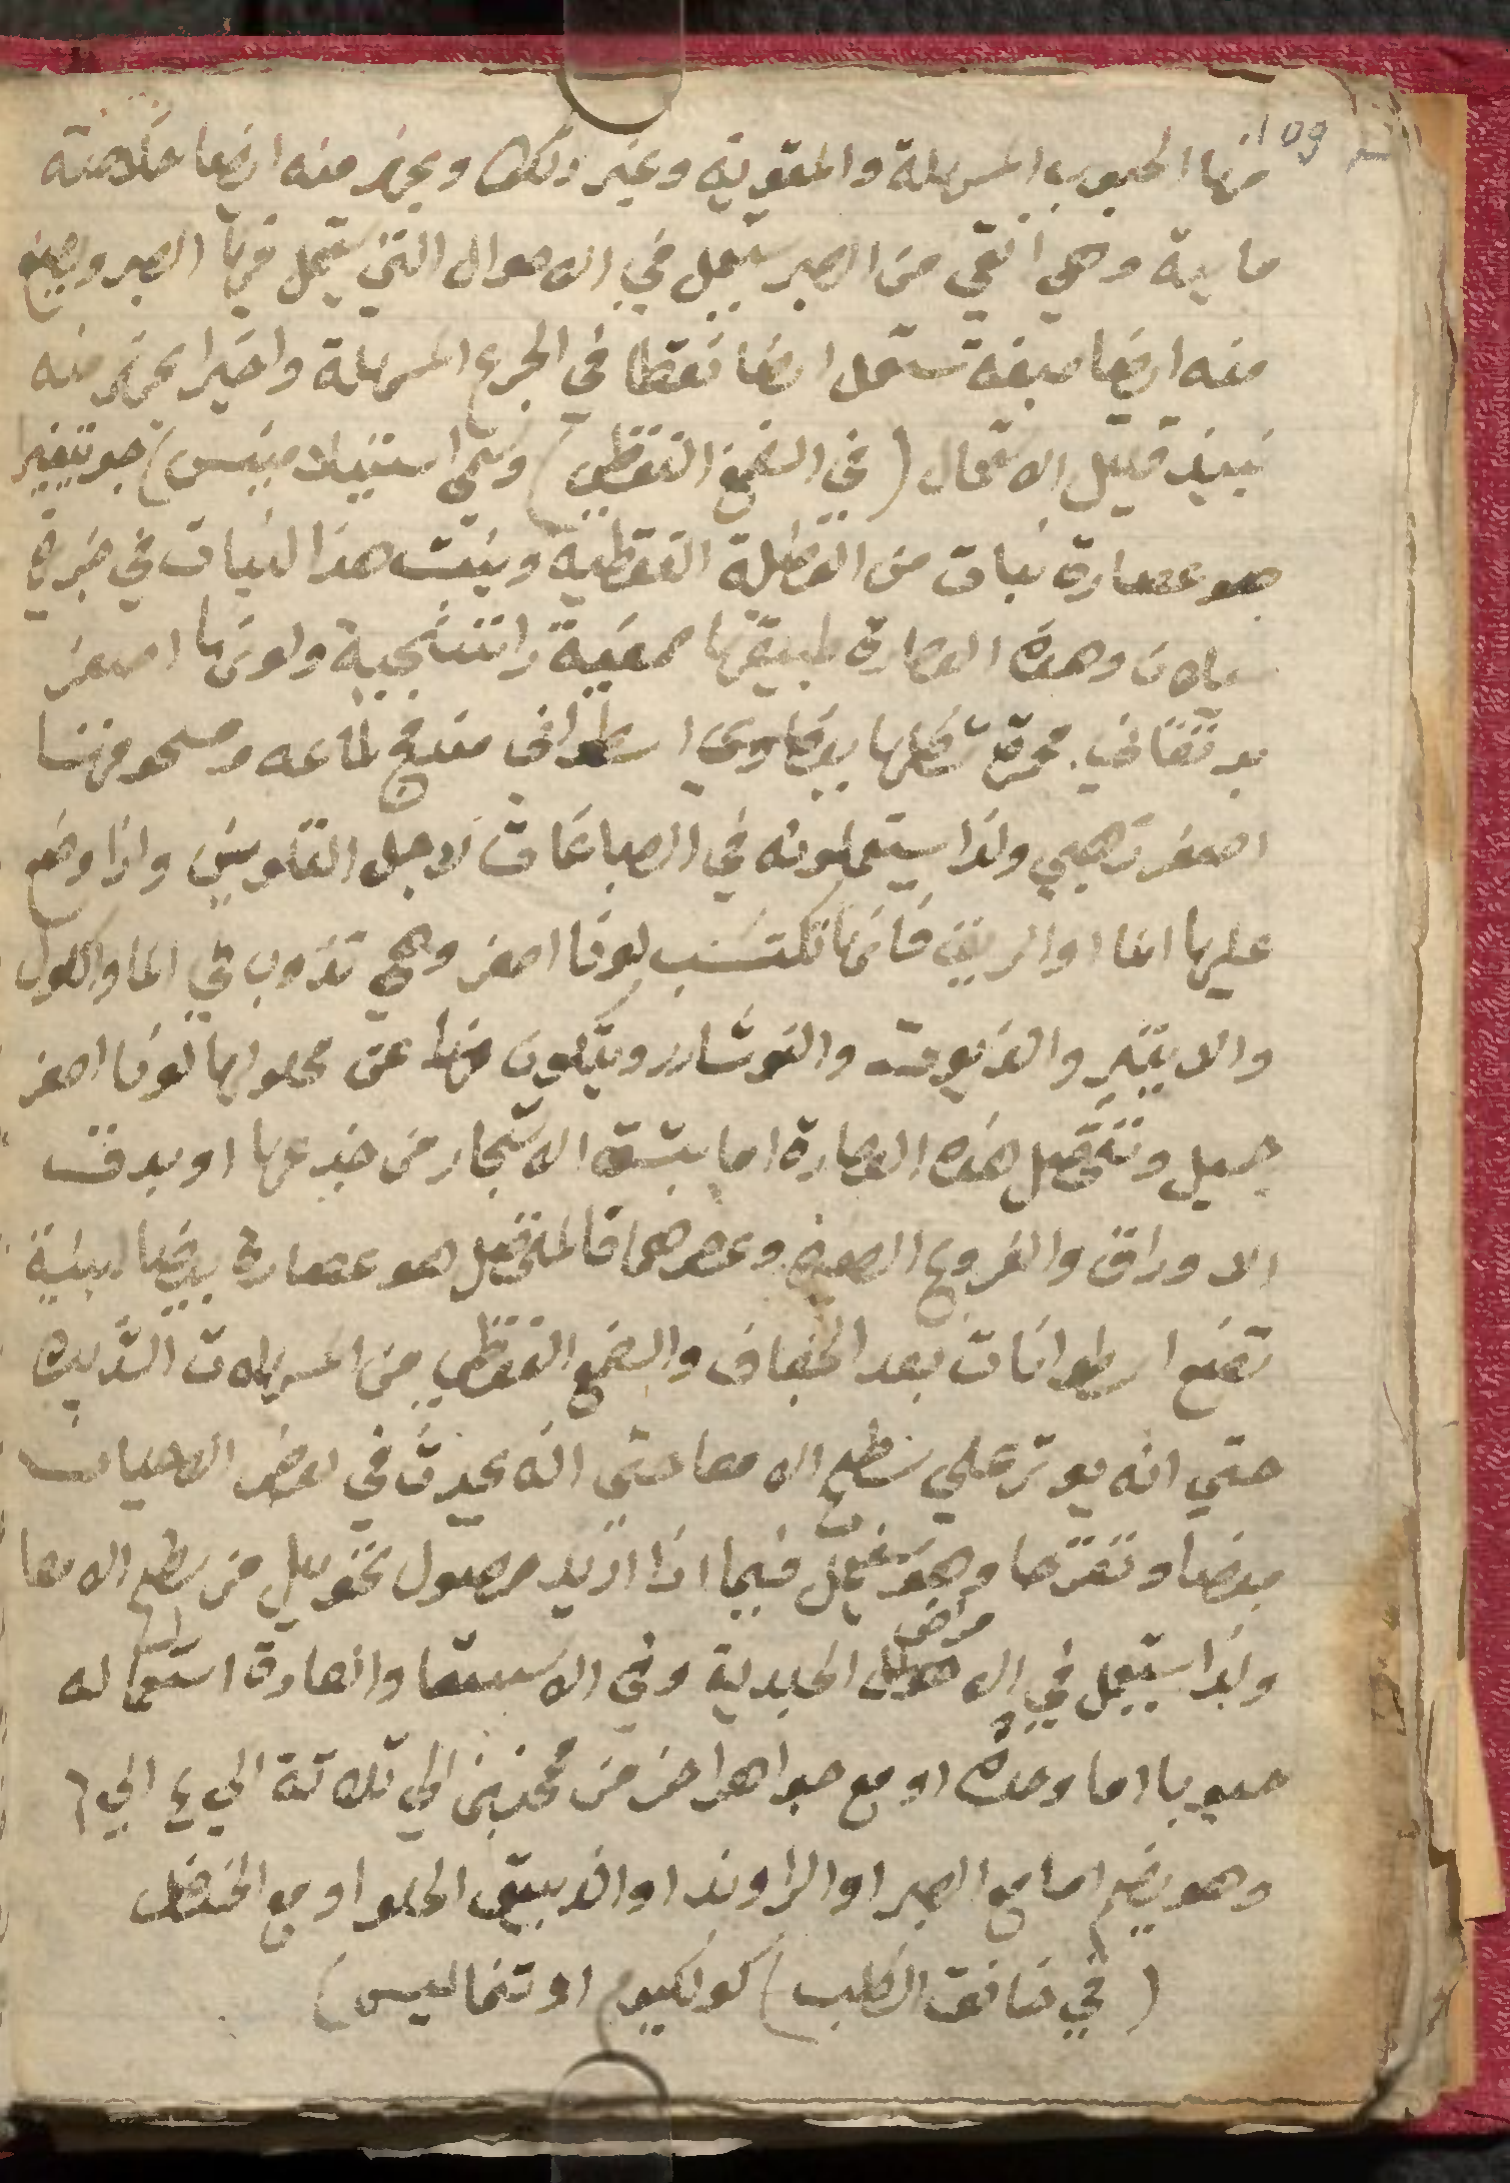 109
منها الحبوب المسهلة والمقوية وغير ذلك ويجهز منه ايضا خلاصة
مايية وهي انقي من الصبر يستعمل في الاحوال التي يستعمل فيها الصبر ويصنع
منه ايضا صبغة تستعمل ايضا نقطا في الجرع المسهلة واخيرا يجهز منه
نبيذ قليل الاستعمال (في الصمغ النقطي) وسمي جو
هو عصارة نبات من الفصيلة النقطية وينبت هذا النبات في جزيرة
سيلان وهذه العصارة طبيعتها صمغية راتنجية ولونها اصفر
برتقاني شكلها بيضاوي اسطواني مندمج لماعه ومسحوقها
اصفر ذهبي ولذا يستعملونه في الصباغات لاجل التلوين واذا وضع
عليها الما او الريق فانها تكتسب لونا اصفر وهي تذوب في الما والكول
والايتير والزيوت والنوشادر ويتكون منها عن محلولها لونا اصفر
جميل وتتحصل هذه العصارة اما بشق الاشجار من جذعها او بدق
الاوراق والفروع الصغيرة وعصرهما فالمتحصل هو عصارة بيضا لبنية
تصنع اسطوانات بعد الجفاف والصمغ النقطي من المسهلات الشديدة
حتي انه يوثر علي سطح الامعا حتي انه يحدث في بعض الاحيان
مغصا وتقرحا وهو يستعمل فيما اذا اريد حصول تحويل من سطح الامعا
ولذا يستعمل في الامراض الجلدية وفي الاستسقا والعادة استعماله
حبوبا اما وحده او مع جواهر اخر من قمحتين الي ثلاثة الي ٤ الي ٦
وهو يضم اما مع الصبر او الراوند او الزيبق الحلو او مع الحنظل
(في خانق الكلب) كولكيوم اوتناليس)